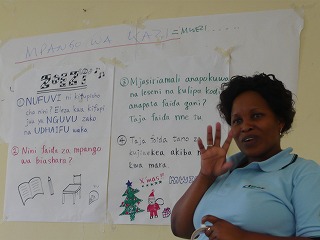 MPANGO WA KAZI = MWEZI.....
① NUFUVI ni kifupisho
cha nini? Eleza kwa kifupi
jua ya NGUVU zako
na UDHAIFU wako
② Nini faida za mpango
wa biashara?
③ Mjasiriamali anapokuwa
na leseni na kulipa kodi
anapata faida gani?
Taja faida nne tu
④ Taja faida tano za
kujiwekea akiba
kwa mara.
X-mas